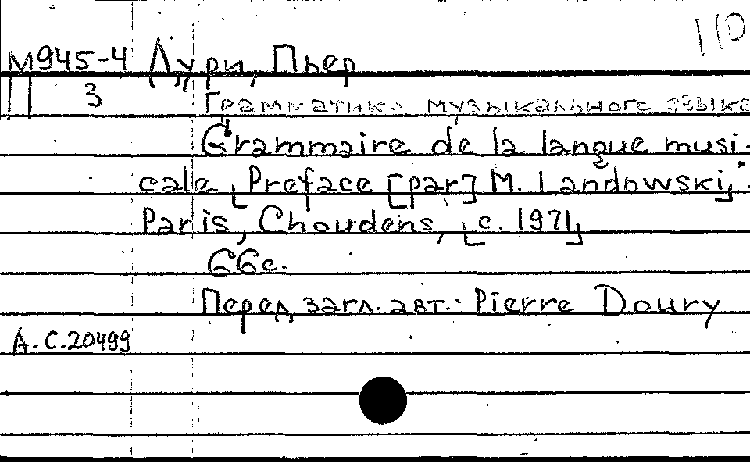 110
М945-4 Дури, Пьер
3 Грамматика музыкального языка
Grammaire de la langue musi-
cale [Preface [par] M. Landowski].
Paris, Choudens, [c. 1971]
66с.
Перед загл. авт.: Pierre Doury
А.С.20499